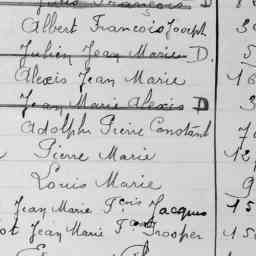 François D
Albert Francois Joseph 3
Julien Jean Marie D. 5
Alexis Jean Marie 16
Jean Marie Alexis D 3
Adolphe Pierre Constant 7
Pierre Marie 12
Louis Marie 9
Jean Marie Fçois Jacques 15
ot Jean Marie Prosper 15